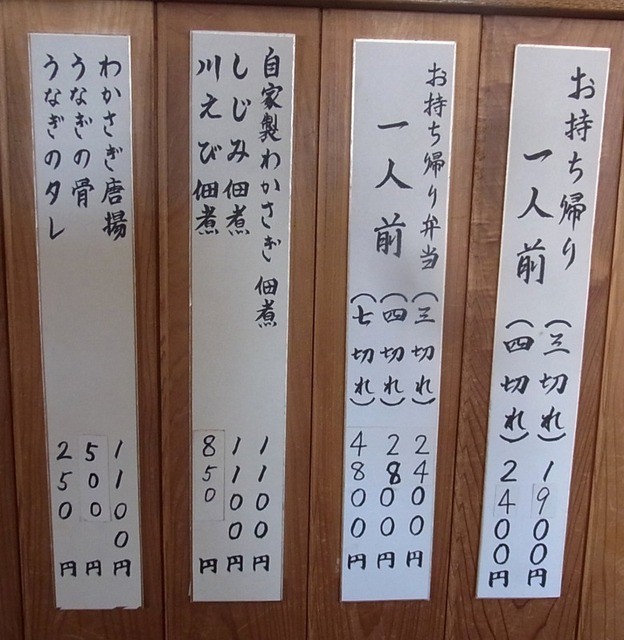 お持ち帰り
一人前
（三切れ）1900円
（四切れ）2400円
お持ち帰り弁当
一人前
（三切れ）2400円
（四切れ）2800円
（七切れ）4800円
自家製わかさぎ佃煮 1100円
しじみ佃煮 1100円
川えび佃煮 850円
わかさぎ唐揚 1100円
うなぎの骨 500円
うなぎのタレ 250円